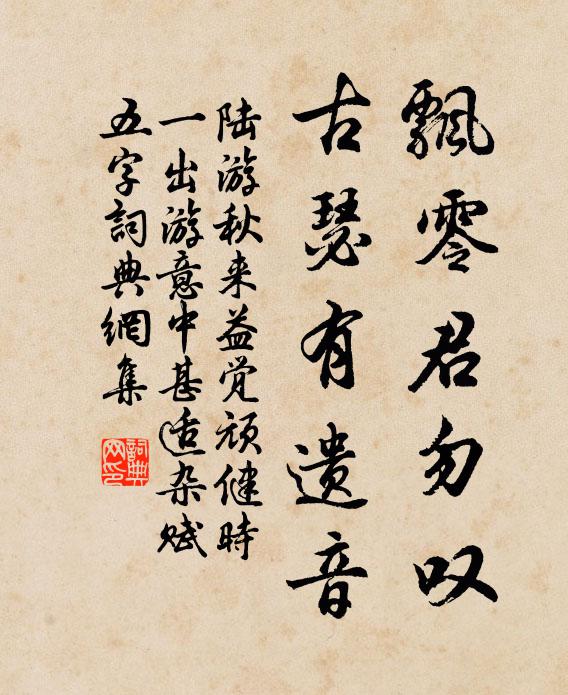 飄零君勿叹
古瑟有遗音
陆游秋来益觉顽健時
一出游意中甚适杂赋
五字詞典網集
詞典
网印